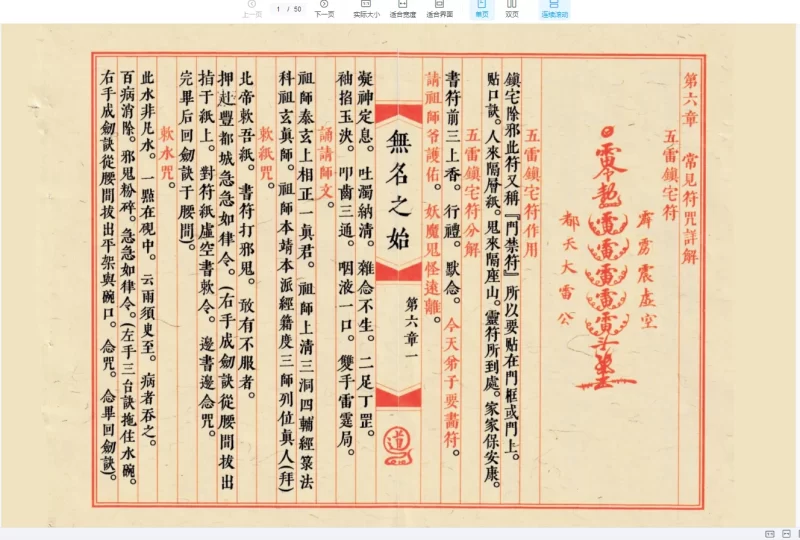 上一页
1 / 50
下一页
实际大小
适合宽度
适合界面
单页
双页
连续滚动
第六章 常見符咒詳解
五雷鎮宅符
霹靂震虛空
都天大雷公
五雷鎮宅符作用
鎮宅除邪此符又稱『門禁符』所以要貼在門框或門上。
貼口訣。人來隔層紙。鬼來隔座山。靈符所到處。家家保安康。
五雷鎮宅符分解
書符前三上香。行禮。默念。今天弟子要畵符。
請祖師爷護佑。妖魔鬼怪遠離。
無名之始
第六章一
道
凝神定息。吐濁納清。雜念不生。二足丁罡。
袖掐玉決。叩齒三通。咽液一口。雙手雷霆局。
誦請師文。
祖師泰玄上相正一真君。祖師上清三洞四輔經籙法
科祖玄真師。祖師本靖本派經籍度三師列位真人(拜)
敕紙咒。
北帝敕吾紙。書符打邪鬼。敢有不服者。
押赴豐都城急急如律令。(右手成劍訣從腰間拔出
掐于紙上。對符紙虛空書敕令。邊書邊念咒。
完畢后回劍訣于腰間)。
敕水咒。
此水非凡水。一點在硯中。云雨須臾至。病者吞之。
百病消除。邪鬼粉碎。急急如律令。(左手三台訣拖住水碗。
右手成劍訣從腰間拔出平架與碗口。念咒。念畢回劍訣)。